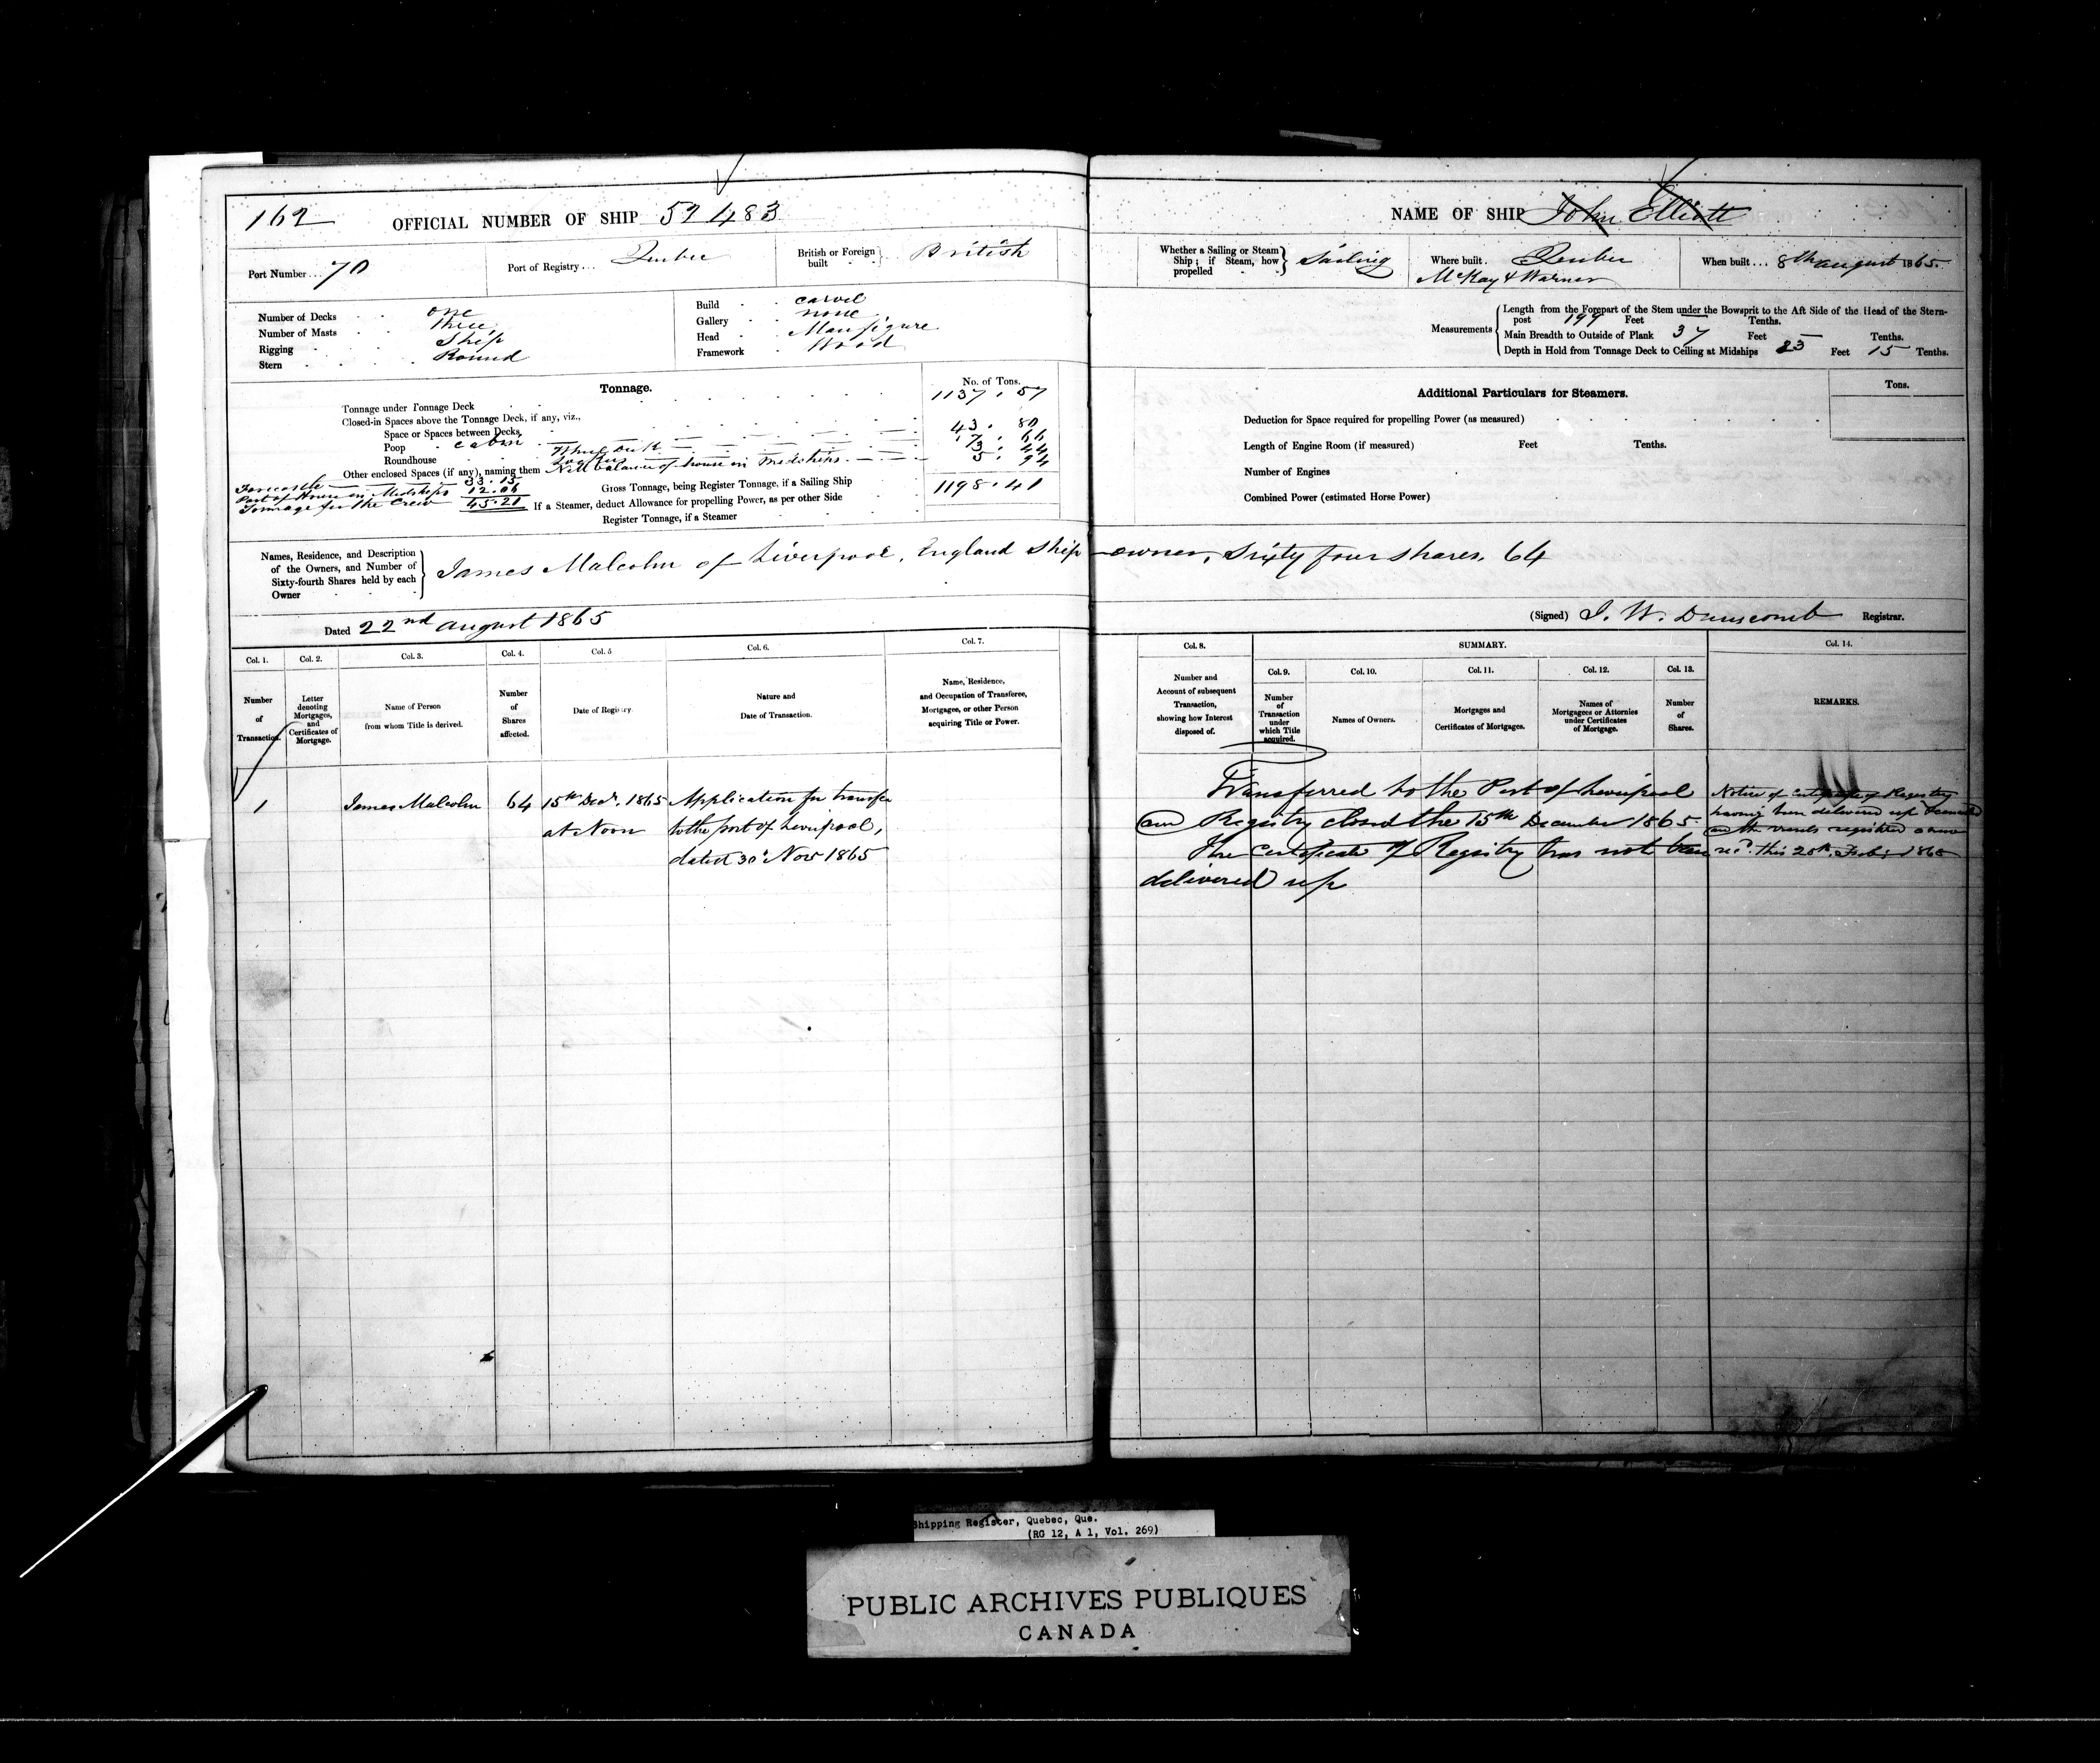 162 OFFICIAL NUMBER OF SHIP 52483
Port Number... 70 Port of Registry... Quebec British or Foreign built British
Number of Decks one
Number of Masts three
Rigging Ship
Stern Round
Build carvel
Gallery none
Head Manfigure
Framework Wood
Tonnage. No. of Tons.
Tonnage under Tonnage Deck 1137.57
Closed-in Spaces above the Tonnage Deck, if any, viz.,
Space or Spaces between Decks
Poop cabin 43.80
Roundhouse
Other enclosed Spaces (if any), naming them balance of house in Midships 5.94
Forecastle 33.15
Part of House in Midships 12.06
Tonnage for the Crew 45.21
Gross Tonnage, being Register Tonnage, if a Sailing Ship 1198.41
If a Steamer, deduct Allowance for propelling Power, as per other Side
Register Tonnage, if a Steamer
Names, Residence, and Description of the Owners, and Number of Sixty-fourth Shares held by each Owner
James Malcolm of Liverpool, England Ship-owner, Sixty four shares. 64
Dated 22nd August 1865
Col. 1. Col. 2. Col. 3. Col. 4. Col. 5 Col. 6. Col. 7.
Number of Transaction.
Letter denoting Mortgages, and Certificates of Mortgage.
Name of Person from whom Title is derived.
Number of Shares affected.
Date of Registry.
Nature and Date of Transaction.
Name, Residence, and Occupation of Transferee, Mortgagee, or other Person acquiring Title or Power.
1 James Malcolm 64 15th Decr. 1865 Application for transfer
at Noon to the port of Liverpool,
dated 30th Novr 1865
NAME OF SHIP John Elliott
Whether a Sailing or Steam Ship; if Steam, how propelled Sailing
Where built Quebec
McKay & Warner
When built... 8th August 1865.
Measurements
Length from the Forepart of the Stem under the Bowsprit to the Aft Side of the Head of the Stern-
post 199 Feet Tenths.
Main Breadth to Outside of Plank 37 Feet Tenths.
Depth in Hold from Tonnage Deck to Ceiling at Midships 23 Feet 15 Tenths.
Additional Particulars for Steamers. Tons.
Deduction for Space required for propelling Power (as measured)
Length of Engine Room (if measured) Feet Tenths.
Number of Engines
Combined Power (estimated Horse Power)
(Signed) J. W. Dunscomb Registrar.
Col. 8. SUMMARY. Col. 14.
Col. 9. Col. 10. Col. 11. Col. 12. Col. 13.
Number and Account of subsequent Transaction, showing how Interest disposed of.
Number of Transaction under which Title acquired.
Names of Owners.
Mortgages and Certificates of Mortgages.
Names of Mortgagees or Attornies under Certificates of Mortgage.
Number of Shares.
REMARKS.
Transferred to the Port of Liverpool
and Registry closed the 15th December 1865.
The Certificate of Registry has not been
delivered up
Notice of Certificate of Registry
having been delivered up
and the vessels registered anew
recd. this 20th Feby 1868
Shipping Register, Quebec, Que.
(RG 12, A 1, Vol. 269)
PUBLIC ARCHIVES PUBLIQUES
CANADA